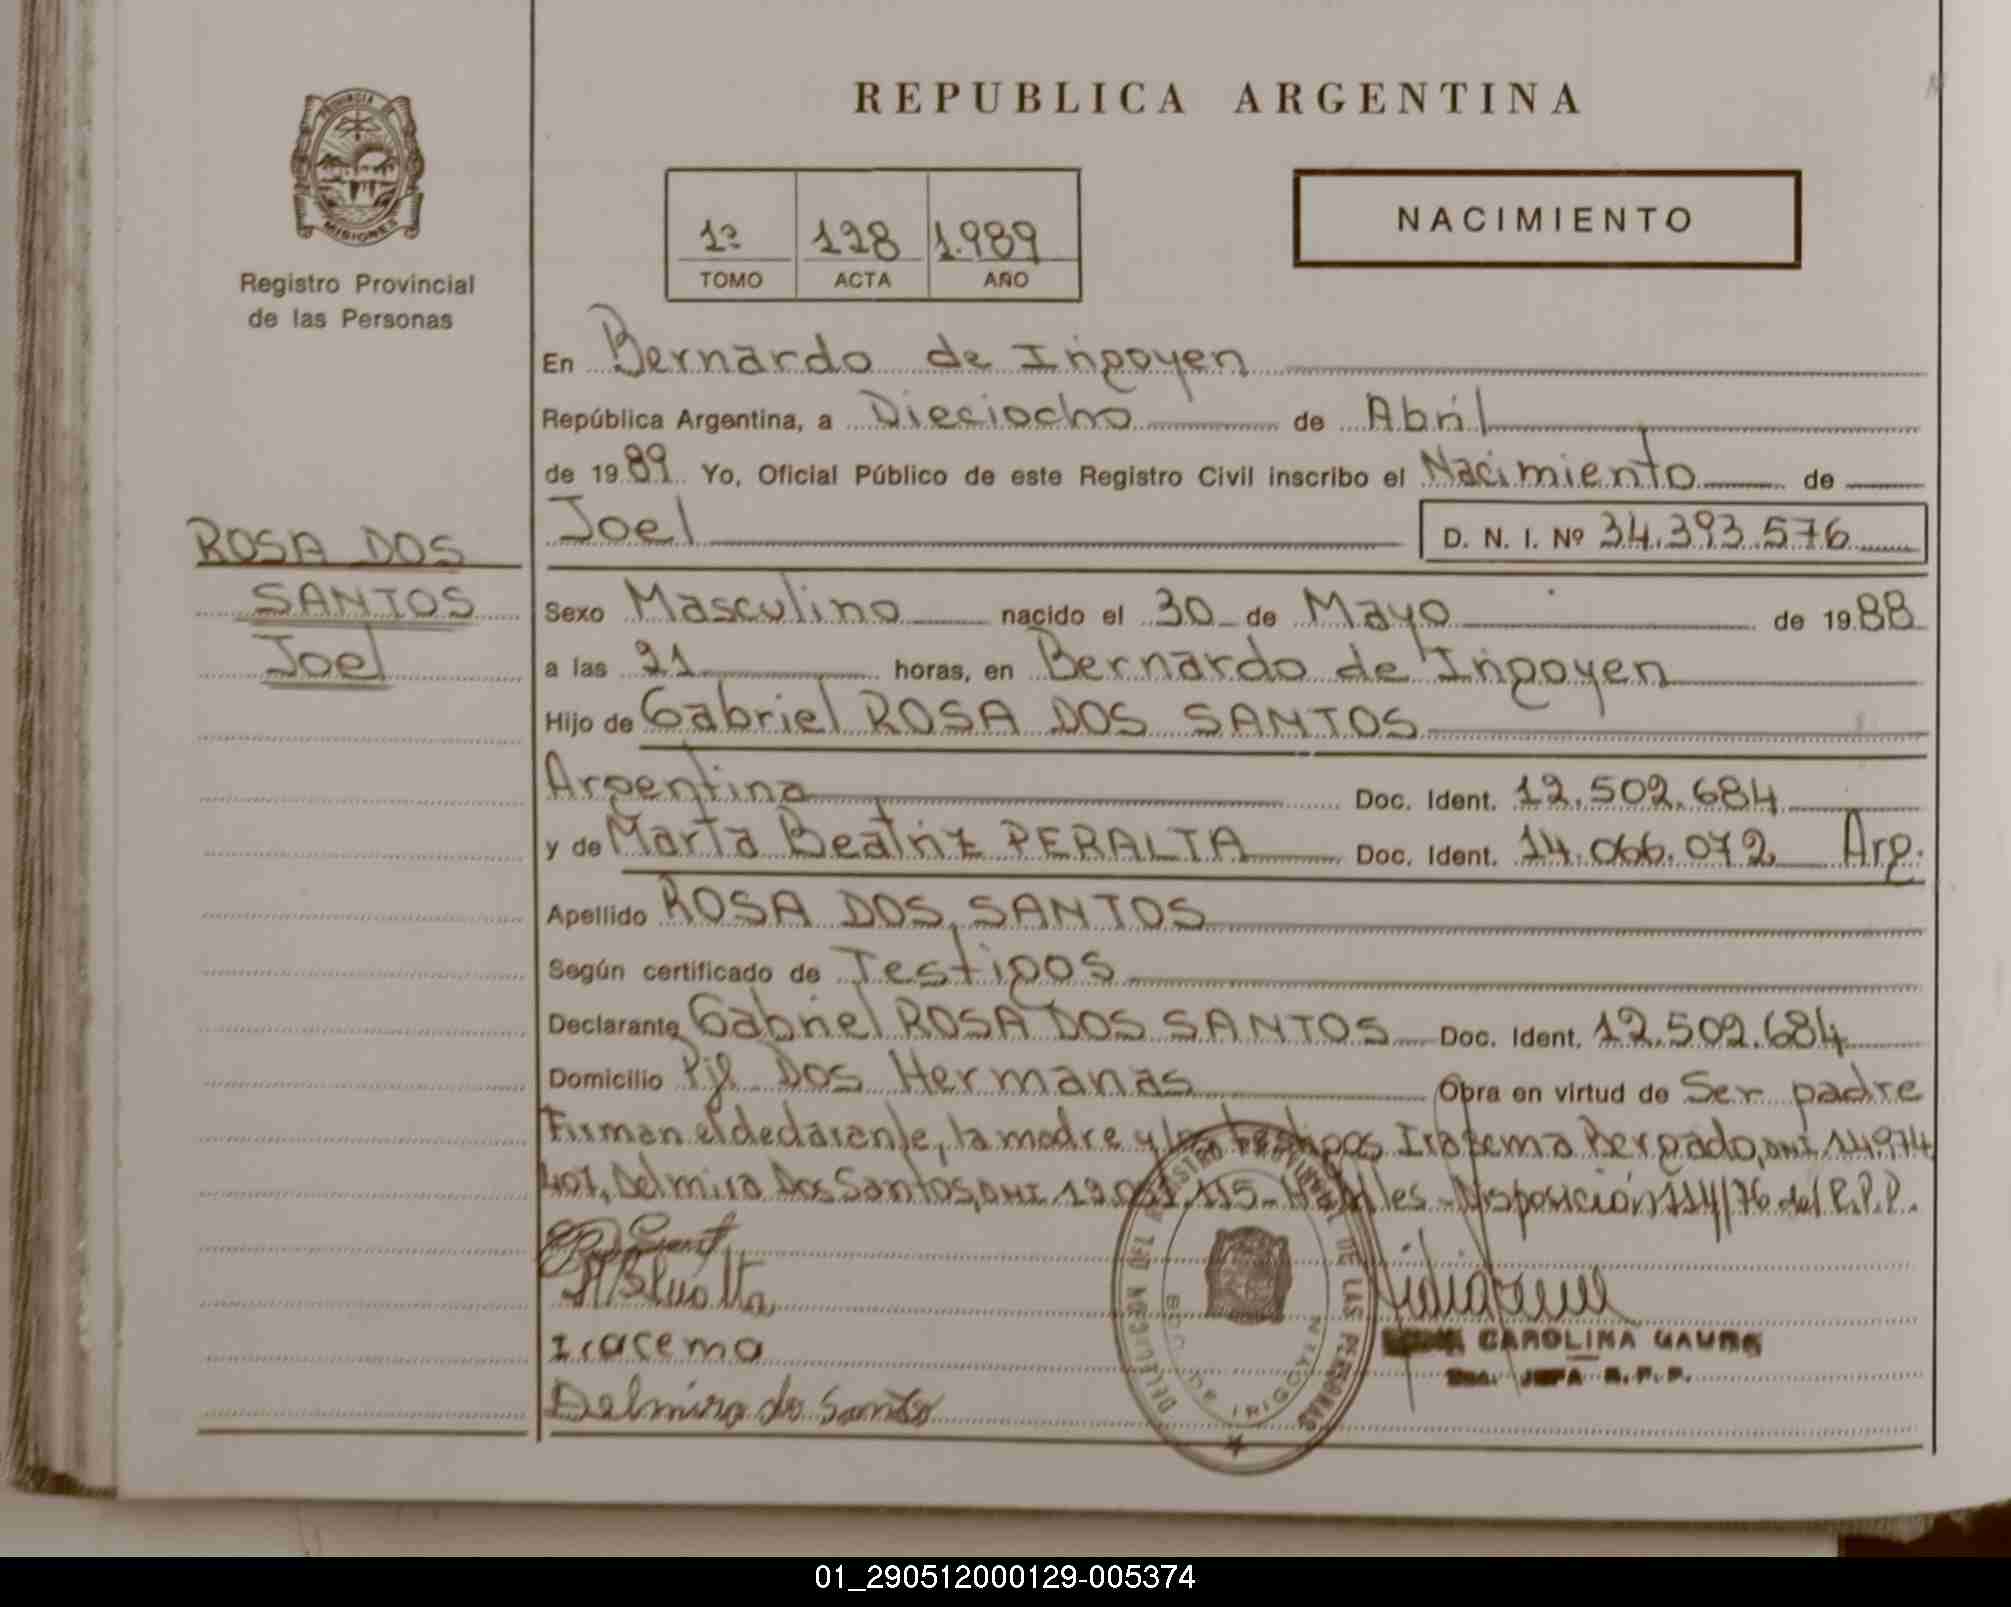 REPUBLICA ARGENTINA
PROVINCIA
MISIONES
Registro Provincial
de las Personas
1º 128 1.989
TOMO ACTA AÑO
NACIMIENTO
En Bernardo de Irigoyen
República Argentina, a Dieciocho de Abril
de 1989 Yo, Oficial Público de este Registro Civil inscribo el Nacimiento de
Joel D. N. I. Nº 34.393.576
ROSA DOS
SANTOS
Joel
Sexo Masculino nacido el 30 de Mayo de 1988
a las 21 horas, en Bernardo de Irigoyen
Hijo de Gabriel ROSA DOS SANTOS
Argentina Doc. Ident. 12.502.684
y de Marta Beatriz PERALTA Doc. Ident. 14.066.072 Arg.
Apellido ROSA DOS SANTOS
Según certificado de Testigos
Declarante Gabriel ROSA DOS SANTOS Doc. Ident. 12.502.684
Domicilio Pje Dos Hermanas Obra en virtud de Ser padre
Firman el declarante, la madre y los testigos Irasema Bergado, DNI 14.974
407, Delmira Dos Santos, DNI 19.051.115- Disposición 114/76 del R.P.P.
Iracema
Delmira do Santo
DELEGACION DEL REGISTRO PROVINCIAL DE LAS PERSONAS
BDO. DE IRIGOYEN
CAROLINA
JEFA R.P.P.
01_290512000129-005374